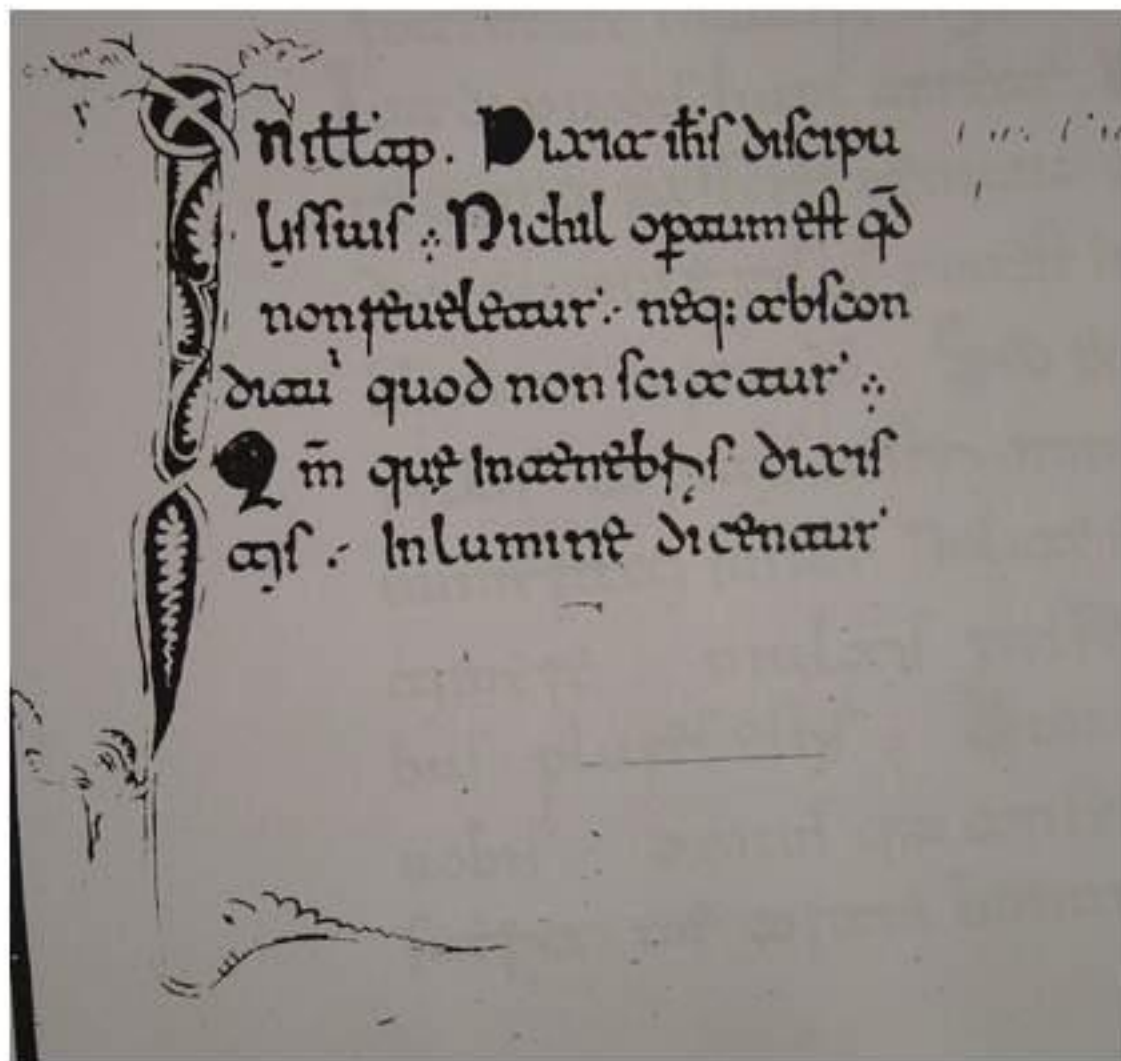 In illo tēp. Dixit ih̄s discipu
lis suis ∴ Nichil opertum est qd̄
non reveletur ∴ neq: abscon
ditur quod non sciatur ∴
Qm̄ que in tenebris dixis
tis ∴ In lumine dicentur